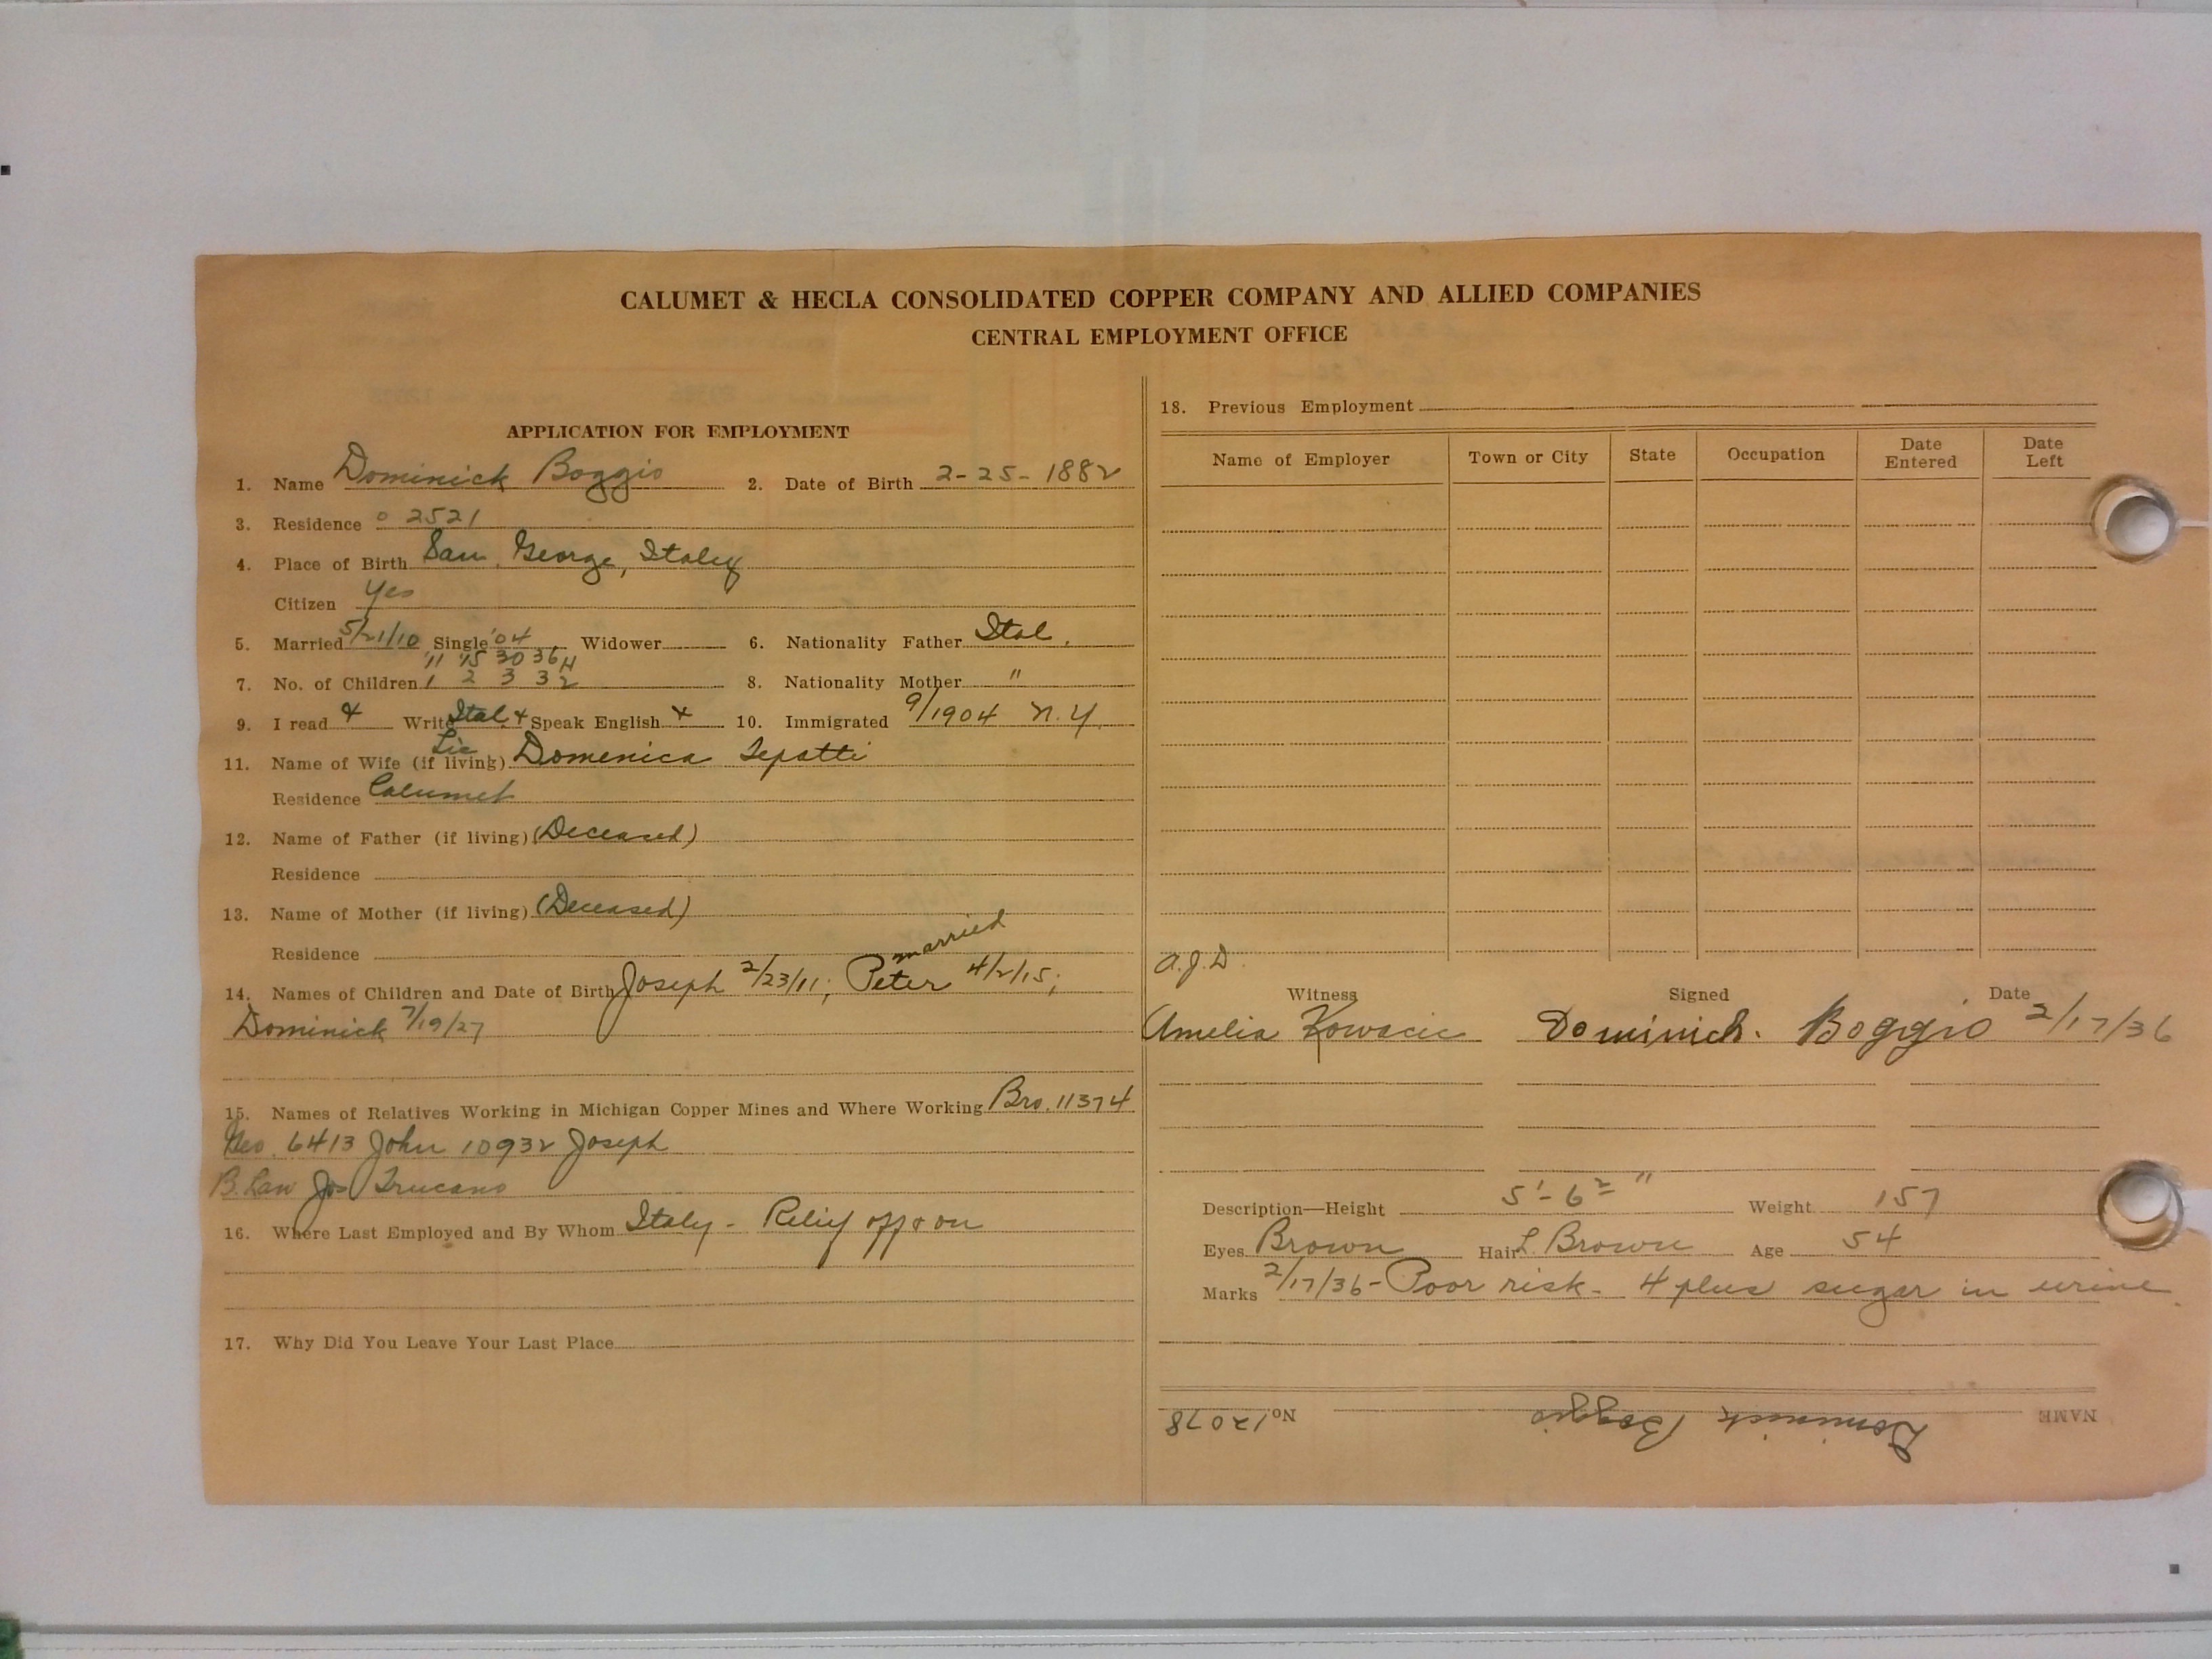 CALUMET & HECLA CONSOLIDATED COPPER COMPANY AND ALLIED COMPANIES
CENTRAL EMPLOYMENT OFFICE
APPLICATION FOR EMPLOYMENT
1. Name Dominick Boggio 2. Date of Birth 2-25-1882
3. Residence o 2521
4. Place of Birth San George, Italy
Citizen Yes
5. Married 5/21/10 Single '04 Widower 6. Nationality Father Ital.
'11 '15 30 36
7. No. of Children 1 2 3 3 8. Nationality Mother "
9. I read Write Ital. Speak English 10. Immigrated 9/1904 N.Y.
11. Name of Wife (if living) Domenica
Residence Calumet
12. Name of Father (if living) (Deceased)
Residence
13. Name of Mother (if living) (Deceased)
Residence
married
14. Names of Children and Date of Birth Joseph 2/23/11; Peter 4/2/15;
Dominick 7/19/27
15. Names of Relatives Working in Michigan Copper Mines and Where Working Bro. 11374
Geo. 6413 John 10932 Joseph
B. Law Jos Trucano
16. Where Last Employed and By Whom Italy - Relief off & on
17. Why Did You Leave Your Last Place
18. Previous Employment
Name of Employer Town or City State Occupation Date Entered Date Left
a.J.D.
Witness Signed Date
Amelia Kowacic Dominick. Boggio 2/17/36
Description—Height 5'-6 2 " Weight 157
Eyes Brown Hair L. Brown Age 54
Marks 2/17/36 - Poor risk - 4 plus sugar in urine
NAME Dominick Boggio No. 12078